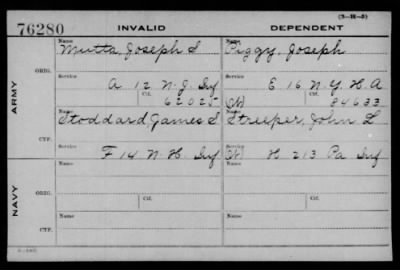 (3-11-5)
76280 INVALID DEPENDENT
Name Name
Mutta, Joseph S Piggy, Joseph
ORIG.
Service Service
A 12 N.J. Inf E 16 N.Y. H A
Ctf. Ctf.
62025 (W) 84633
ARMY
Name Name
Stoddard, James S Streeper, John L
CTF.
Service Service
F 14 N. H. Inf (W) H 213 Pa Inf
Name Ctf. Name Ctf.
NAVY
ORIG.
Name Name
CTF.